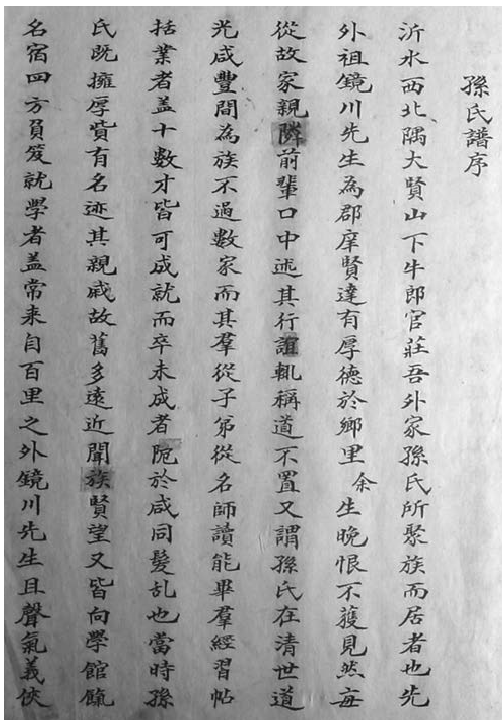 孫氏譜序
沂水西北隅大賢山下牛郎官莊吾外家孫氏所聚族而居者也先
外祖鏡川先生為郡庠賢達有厚德於鄉里余生晚恨不獲見然每
從故家親隣前輩口中述其行誼輒稱道不置又謂孫氏在清世道
光咸豐間為族不過數家而其羣從子弟從名師讀能畢羣經習帖
括業者盖十數才皆可成就而卒未成者阨於咸同髮乱也當時孫
氏既擁厚貲有名迹其親戚故舊多遠近聞族賢望又皆向學館餼
名宿四方負笈就學者盖常来自百里之外鏡川先生且聲氣義俠